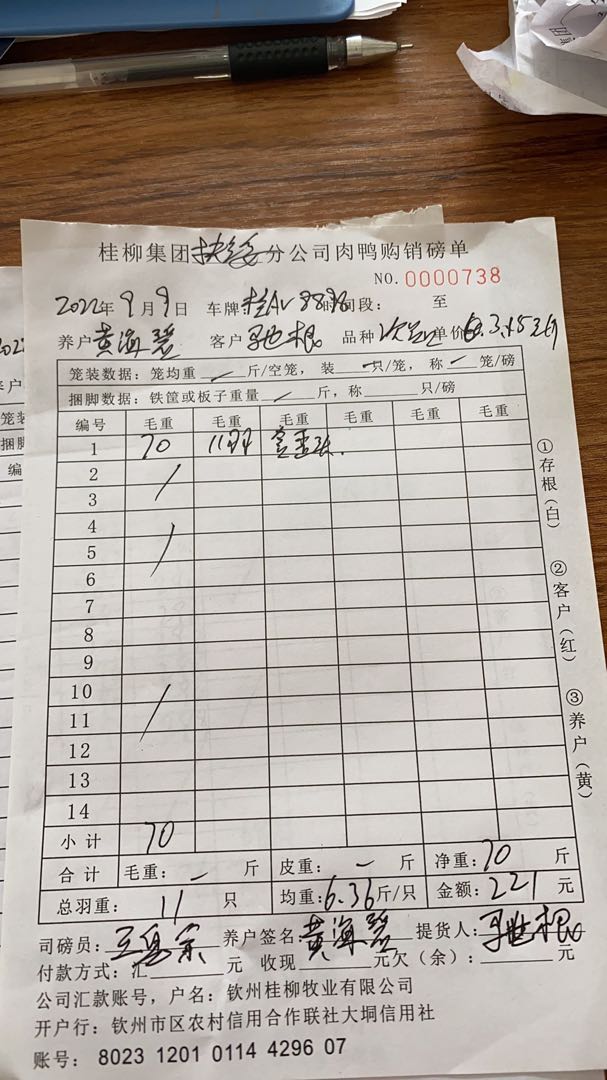 桂柳集团扶绥分公司肉鸭购销磅单
NO.0000738
2022年9月9日 车牌 时间段: 至
养户 黄海 客户 品种 次 单价 3.15
笼装数据:笼均重 斤/空笼,装 只/笼,称 笼/磅
捆脚数据:铁筐或板子重量 斤,称 只/磅
编号 毛重 毛重 毛重 毛重 毛重 毛重
1 70 11羽
2
3
4
5
6
7
8
9
10
11
12
13
14
小计 70
合计 毛重: 斤 皮重: 斤 净重:70 斤
总羽重: 11 只 均重:6.36斤/只 金额:221元
司磅员: 养户签名 黄海 提货人: 根
付款方式:汇 元 收现 元欠(余): 元
公司汇款账号,户名:钦州桂柳牧业有限公司
开户行:钦州市区农村信用合作联社大垌信用社
账号: 8023 1201 0114 4296 07
①存根(白)
②客户(红)
③养户(黄)